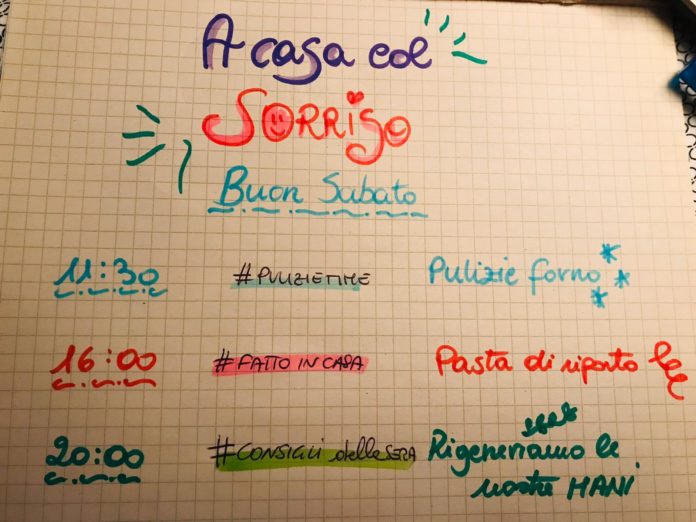 A casa col
SORRiSo
Buon Sabato
11:30 #PULIZIETIME Pulizie forno
16:00 #FATTO IN CASA Pasta di riporto
20:00 #CONSIGLI della SERA Rigeneriamo le
nostre MANI